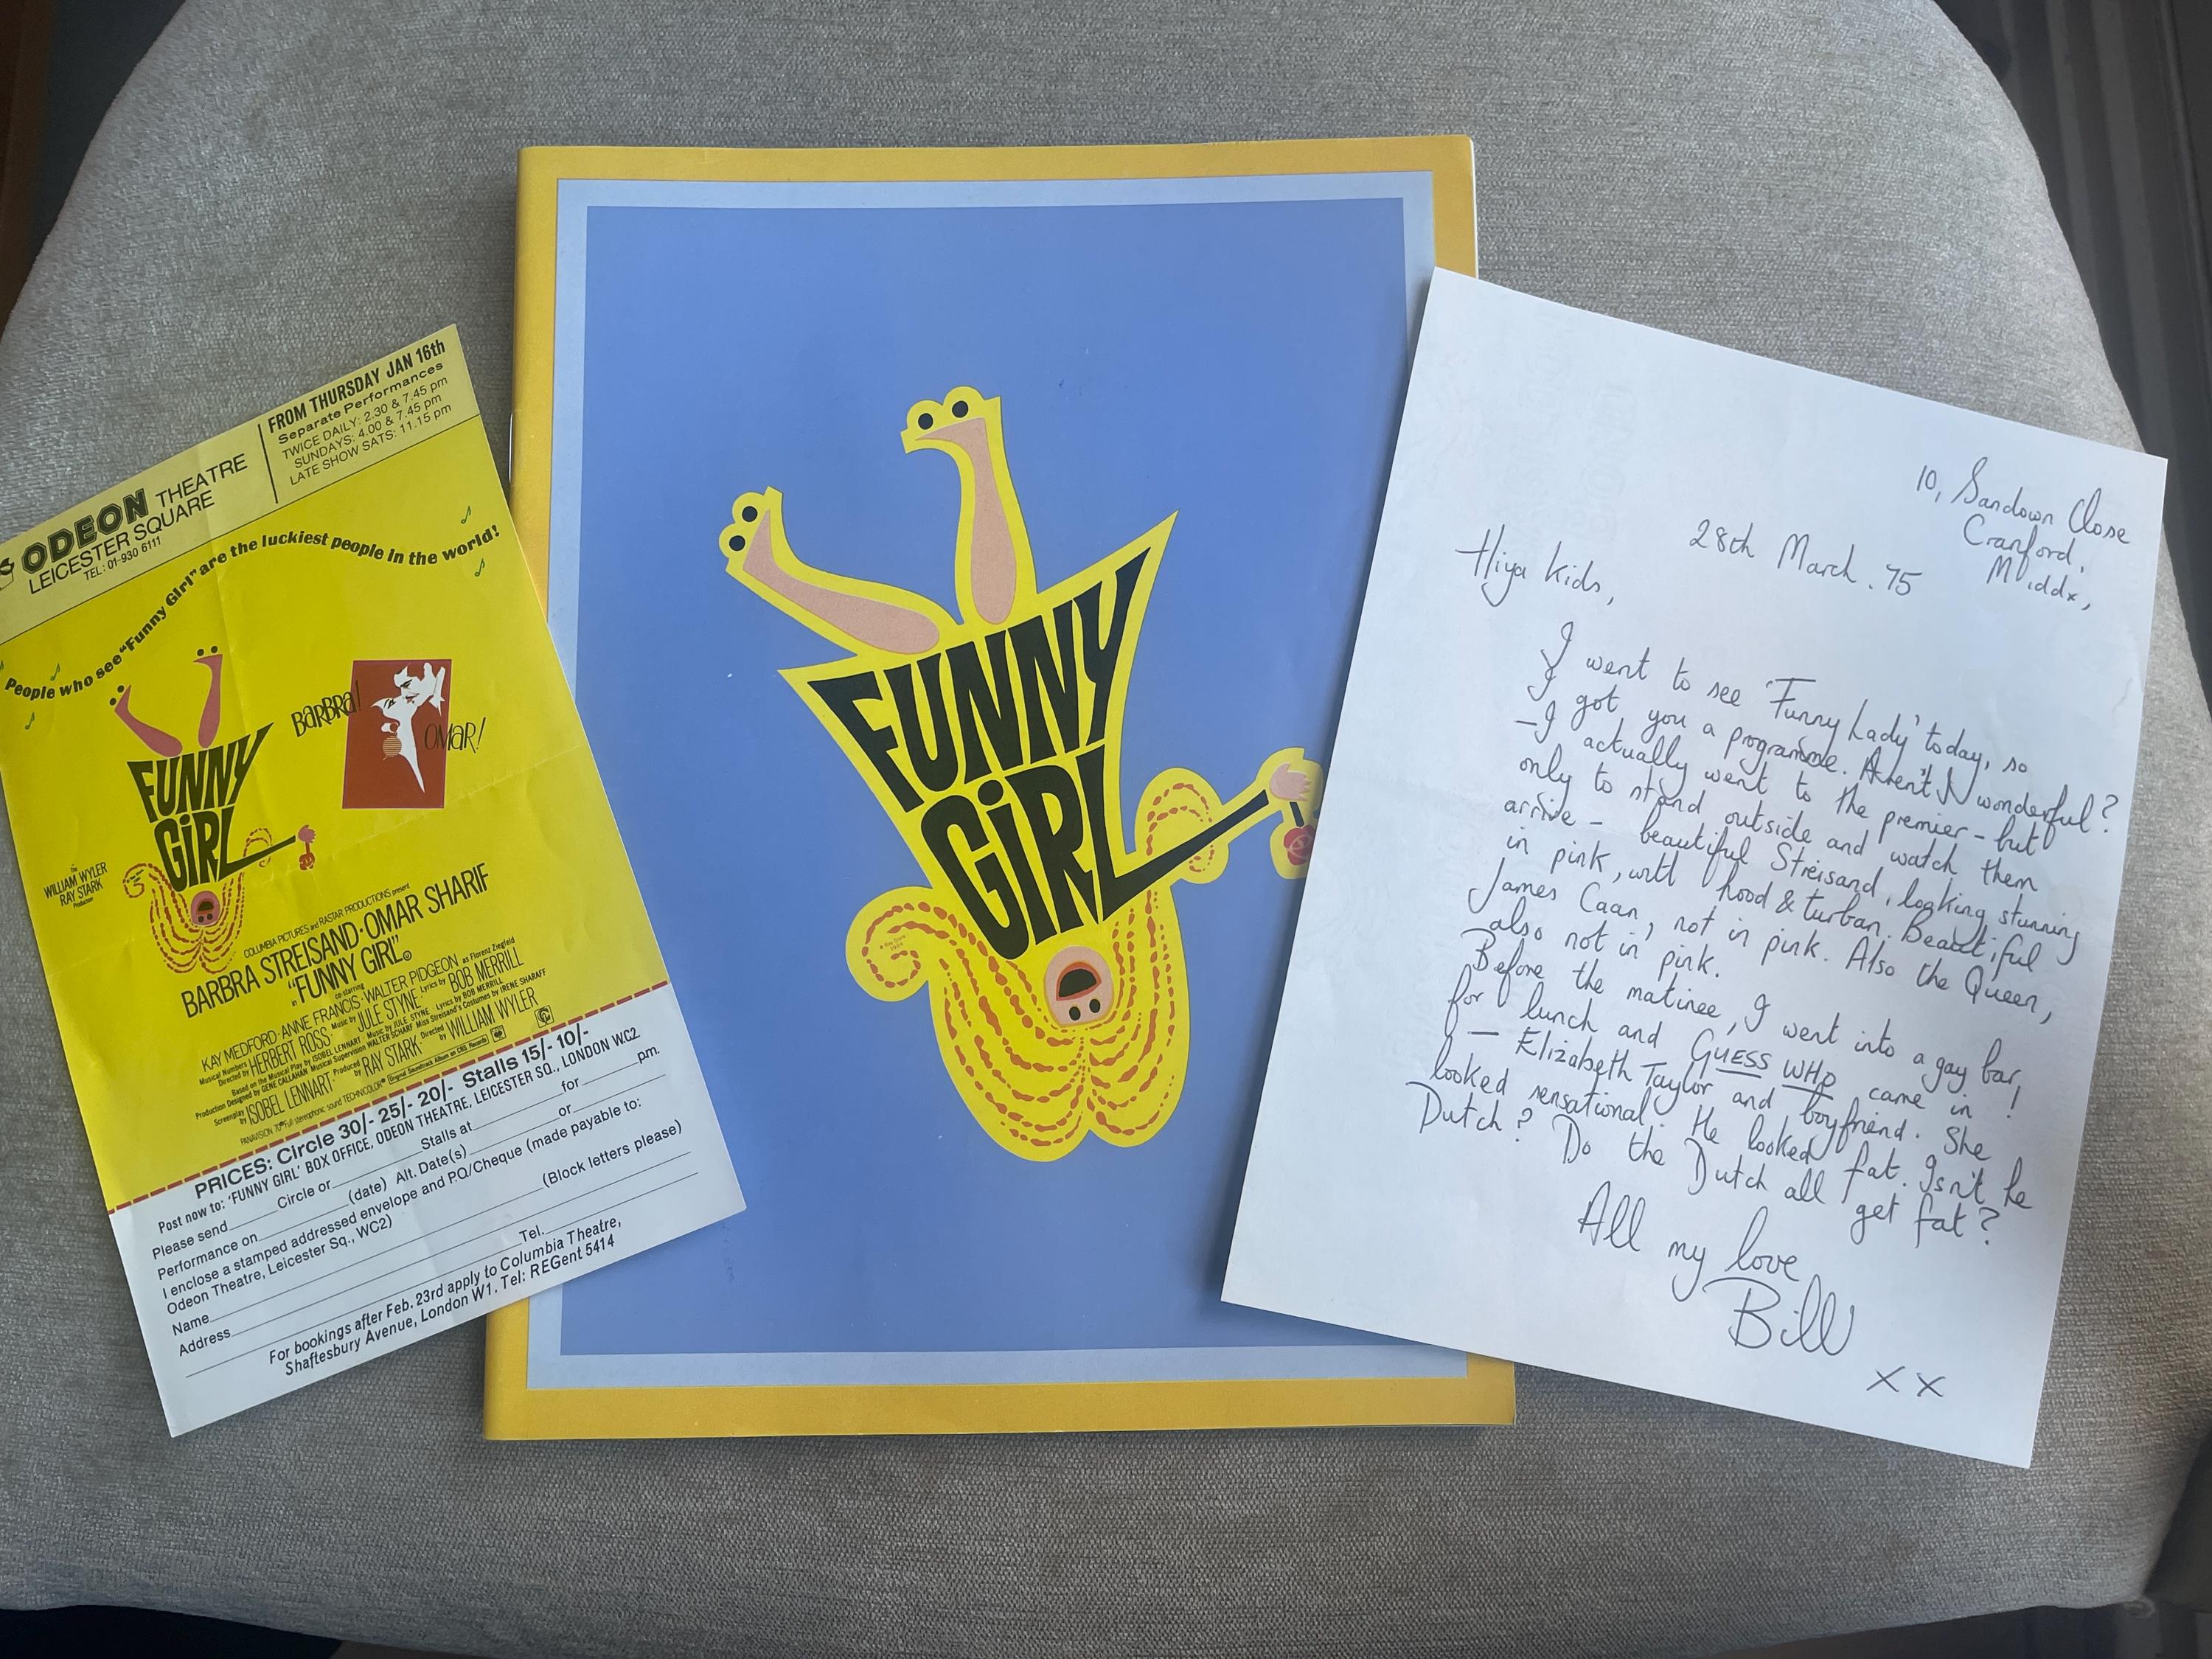 ODEON THEATRE
LEICESTER SQUARE
TEL: 01-930 6111
FROM THURSDAY JAN 16th
Separate Performances
TWICE DAILY: 2.30 & 7.45 pm
SUNDAYS: 4.00 & 7.45 pm
LATE SHOW SATS: 11.15 pm
People who see "Funny Girl" are the luckiest people in the world!
BARBRA!
OMAR!
FUNNY
GIRL
The
WILLIAM WYLER
RAY STARK
Production
COLUMBIA PICTURES and RASTAR PRODUCTIONS present
BARBRA STREISAND·OMAR SHARIF
in "FUNNY GIRL"
co-starring
KAY MEDFORD·ANNE FRANCIS·WALTER PIDGEON as Florenz Ziegfeld
Musical Numbers Directed by HERBERT ROSS· Music by JULE STYNE· Lyrics by BOB MERRILL
Based on the Musical Play by ISOBEL LENNART· Music by JULE STYNE· Lyrics by BOB MERRILL
Production Designed by GENE CALLAHAN· Musical Supervision WALTER SCHARF· Miss Streisand's Costumes by IRENE SHARAFF
Screenplay by ISOBEL LENNART· Produced by RAY STARK· Directed by WILLIAM WYLER
PANAVISION 70 Full stereophonic sound TECHNICOLOR Original Soundtrack Album on CBS Records
PRICES: Circle 30/- 25/- 20/- Stalls 15/- 10/-
Post now to: 'FUNNY GIRL' BOX OFFICE, ODEON THEATRE, LEICESTER SQ., LONDON W.C.2
Please send Circle or Stalls at for p.m.
Performance on (date) Alt. Date(s) or
I enclose a stamped addressed envelope and P.O./Cheque (made payable to:
Odeon Theatre, Leicester Sq., WC2)
Name (Block letters please)
Address
Tel.
For bookings after Feb. 23rd apply to Columbia Theatre,
Shaftesbury Avenue, London W1. Tel: REGent 5414
FUNNY
GIRL
10, Sandown Close
Cranford,
Middx,
28th March. 75
Hiya kids,
I went to see 'Funny Lady' today, so
I got you a programme. Aren't I wonderful?
- I actually went to the premier - but
only to stand outside and watch them
arrive - beautiful Streisand, looking stunning
in pink, with hood & turban. Beautiful
James Caan, not in pink. Also the Queen,
also not in pink.
Before the matinee, I went into a gay bar,
for lunch and GUESS WHO came in!
- Elizabeth Taylor and boyfriend. She
looked sensational. He looked fat. Isn't he
Dutch? Do the Dutch all get fat?
All my love
Bill
xx